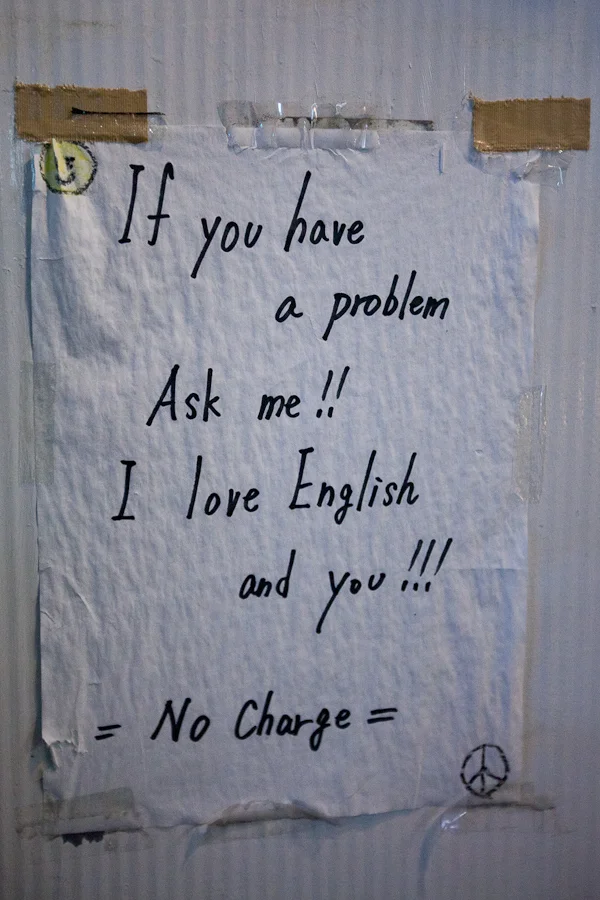 If you have
a problem
Ask me!!
I love English
and you!!!
= No Charge =